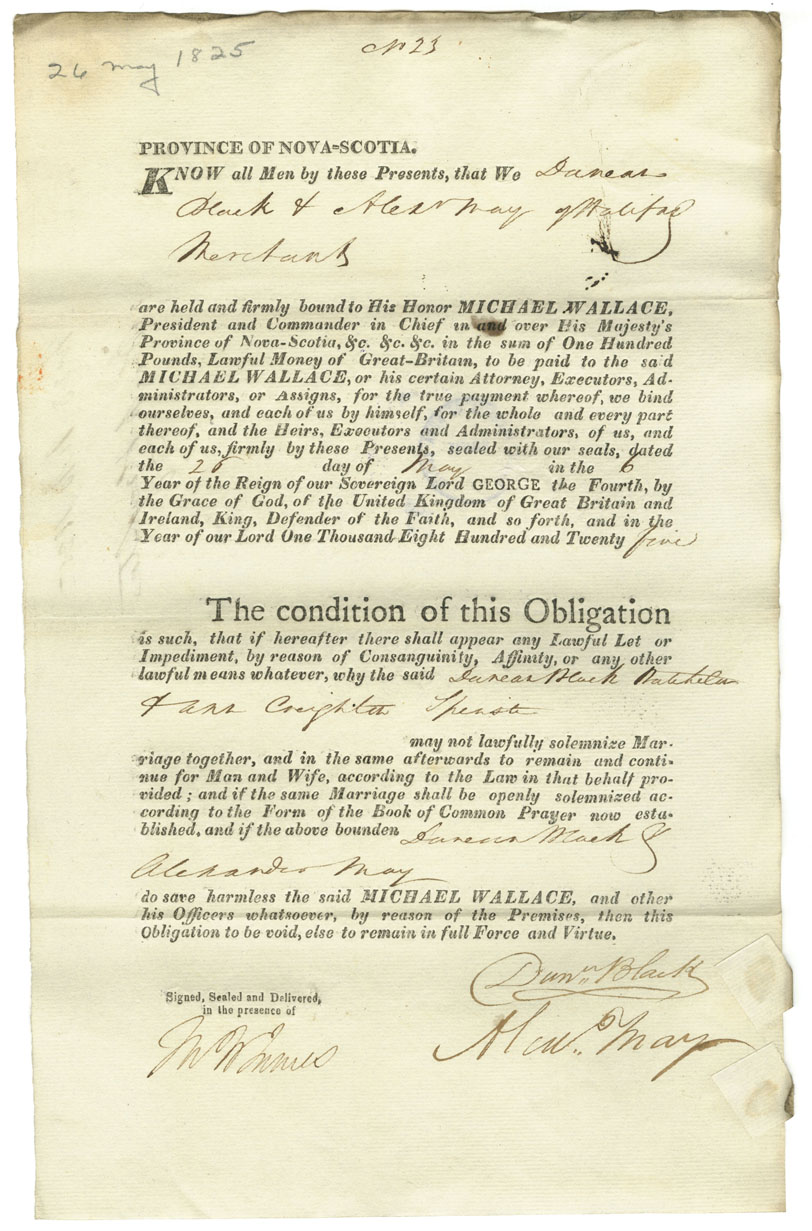 No 23
26 may 1825
PROVINCE OF NOVA=SCOTIA.
KNOW all Men by these Presents, that We Duncan
Black & Alexr May of Halifax
Merchants
are held and firmly bound to His Honor MICHAEL WALLACE,
President and Commander in Chief in and over His Majesty's
Province of Nova-Scotia, &c. &c. &c. in the sum of One Hundred
Pounds, Lawful Money of Great-Britain, to be paid to the said
MICHAEL WALLACE, or his certain Attorney, Executors, Ad-
ministrators, or Assigns, for the true payment whereof, we bind
ourselves, and each of us by himself, for the whole and every part
thereof, and the Heirs, Executors and Administrators, of us, and
each of us, firmly by these Presents, sealed with our seals, dated
the 26 day of May in the 6
Year of the Reign of our Sovereign Lord GEORGE the Fourth, by
the Grace of God, of the United Kingdom of Great Britain and
Ireland, King, Defender of the Faith, and so forth, and in the
Year of our Lord One Thousand Eight Hundred and Twenty five
The condition of this Obligation
is such, that if hereafter there shall appear any Lawful Let or
Impediment, by reason of Consanguinity, Affinity, or any other
lawful means whatever, why the said Duncan Black Batchelor
& Ann Creighton Spinster
may not lawfully solemnize Mar-
riage together, and in the same afterwards to remain and conti-
nue for Man and Wife, according to the Law in that behalf pro-
vided; and if the same Marriage shall be openly solemnized ac-
cording to the Form of the Book of Common Prayer now esta-
blished, and if the above bounden Duncan Black &
Alexander May
do save harmless the said MICHAEL WALLACE, and other
his Officers whatsoever, by reason of the Premises, then this
Obligation to be void, else to remain in full Force and Virtue.
Dunn Black
Signed, Sealed and Delivered,
in the presence of
Alexr May